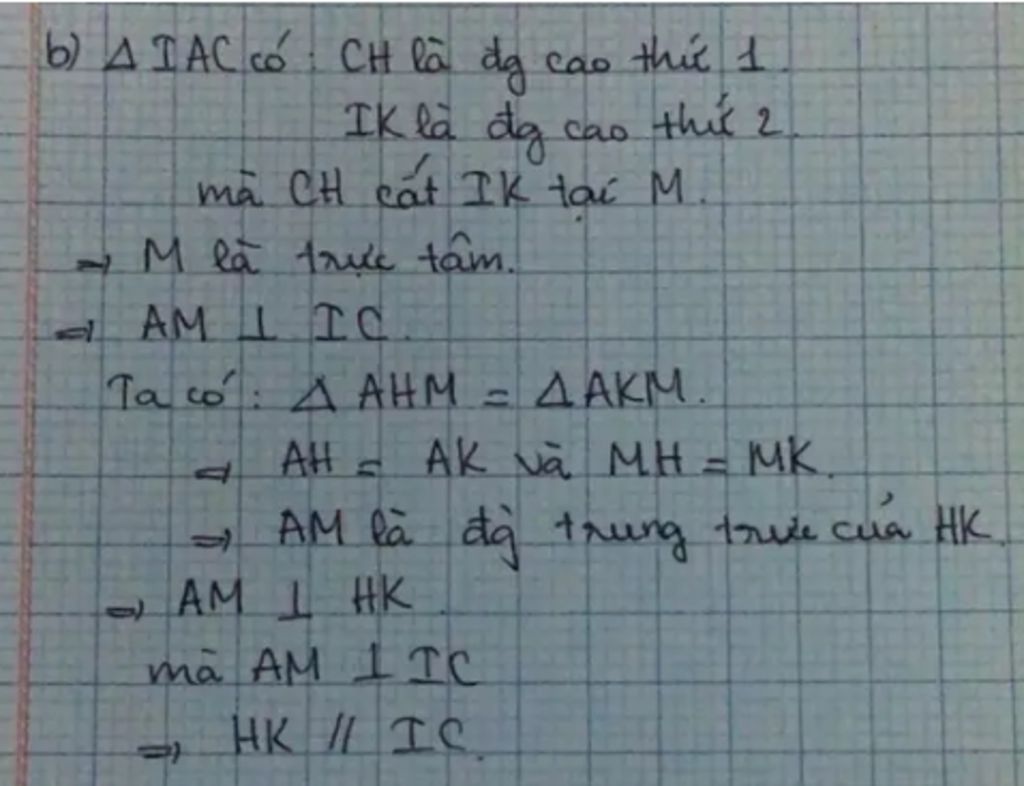 b) Δ IAC có: CH là đg cao thứ 1.
IK là đg cao thứ 2.
mà CH cắt IK tại M.
⇒ M là trực tâm.
⇒ AM ⊥ IC.
Ta có: Δ AHM = ΔAKM.
⇒ AH = AK và MH = MK.
⇒ AM là đg trung trực của HK
⇒ AM ⊥ HK.
mà AM ⊥ IC
⇒ HK // IC.